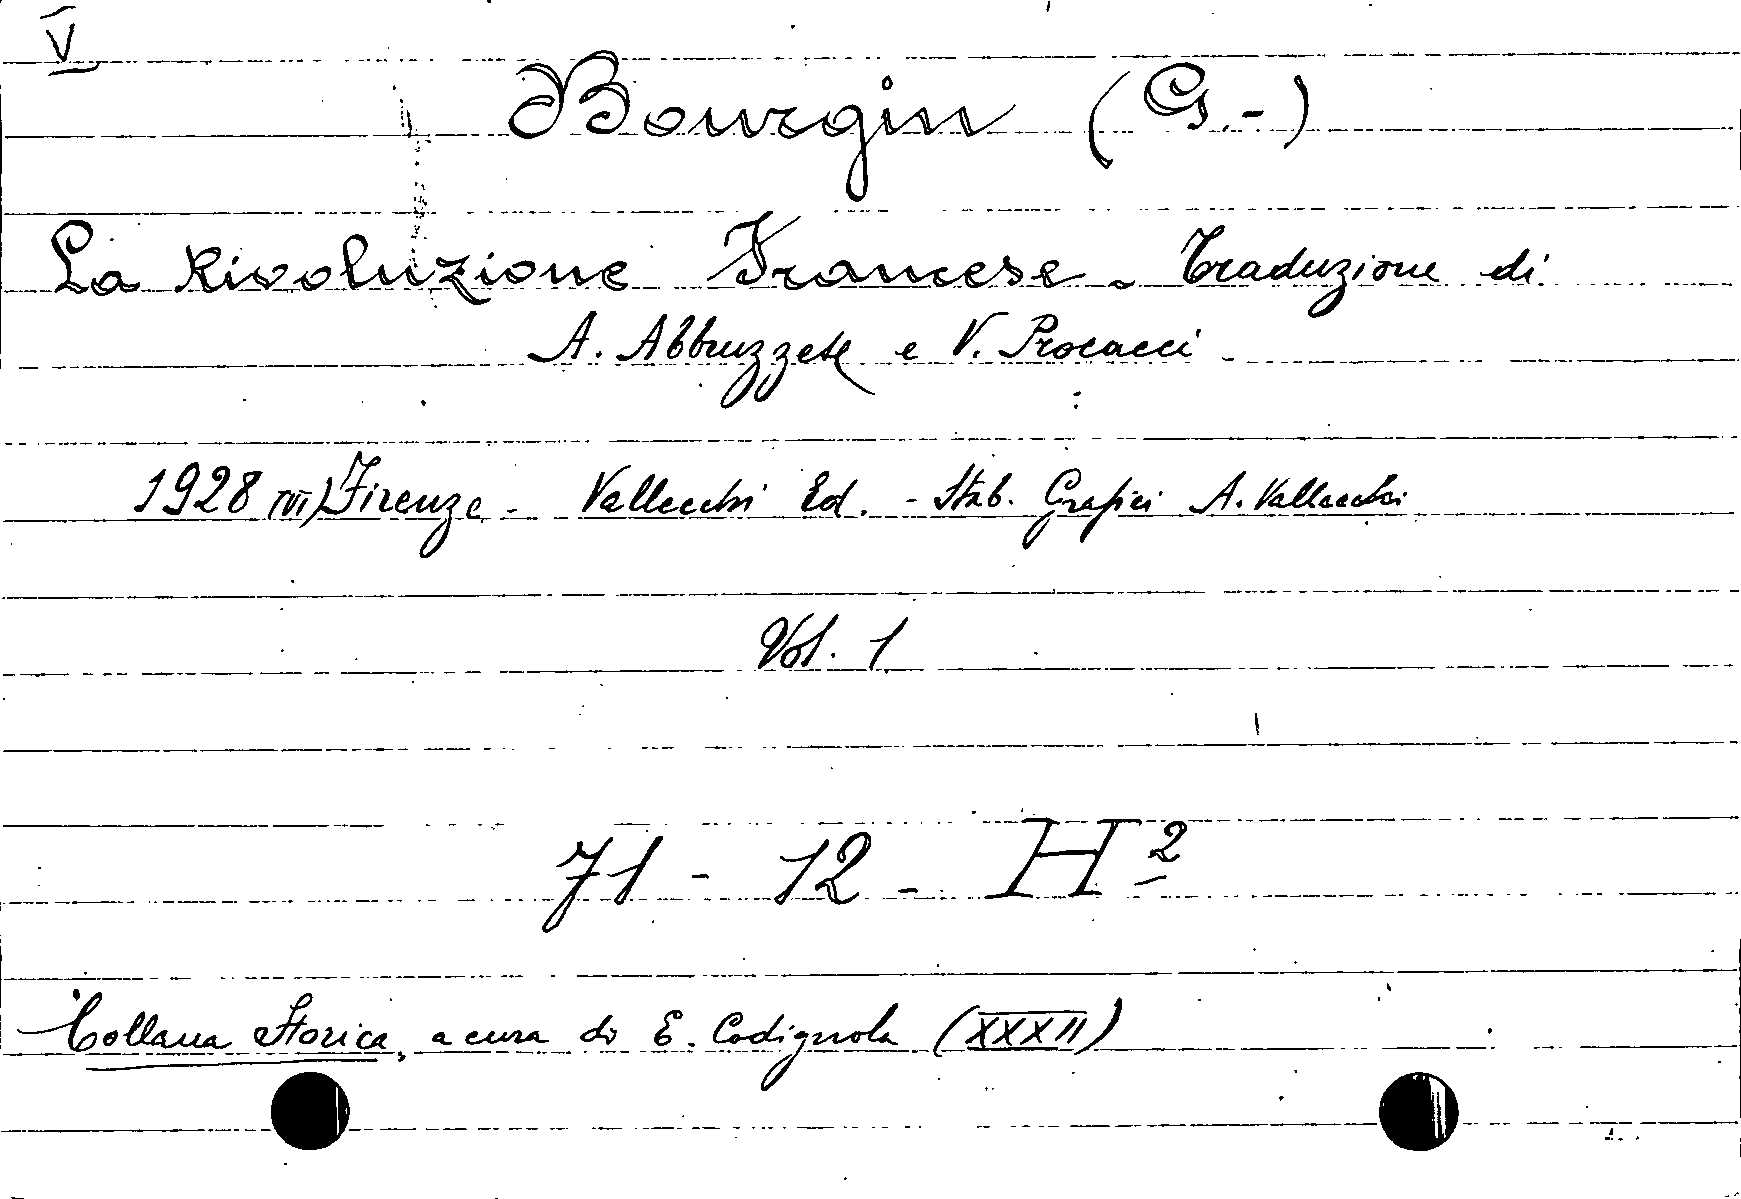 V
Bourgin (G.-)
La Rivoluzione Francese - Traduzione di
A. Abbruzzese e V. Procacci -
1928 (VI) Firenze - Vallecchi Ed. - Stab. Grafici A. Vallecchi
Vol. 1
71 - 12 - H²
Collana Storica, a cura di E. Codignola (XXXII)